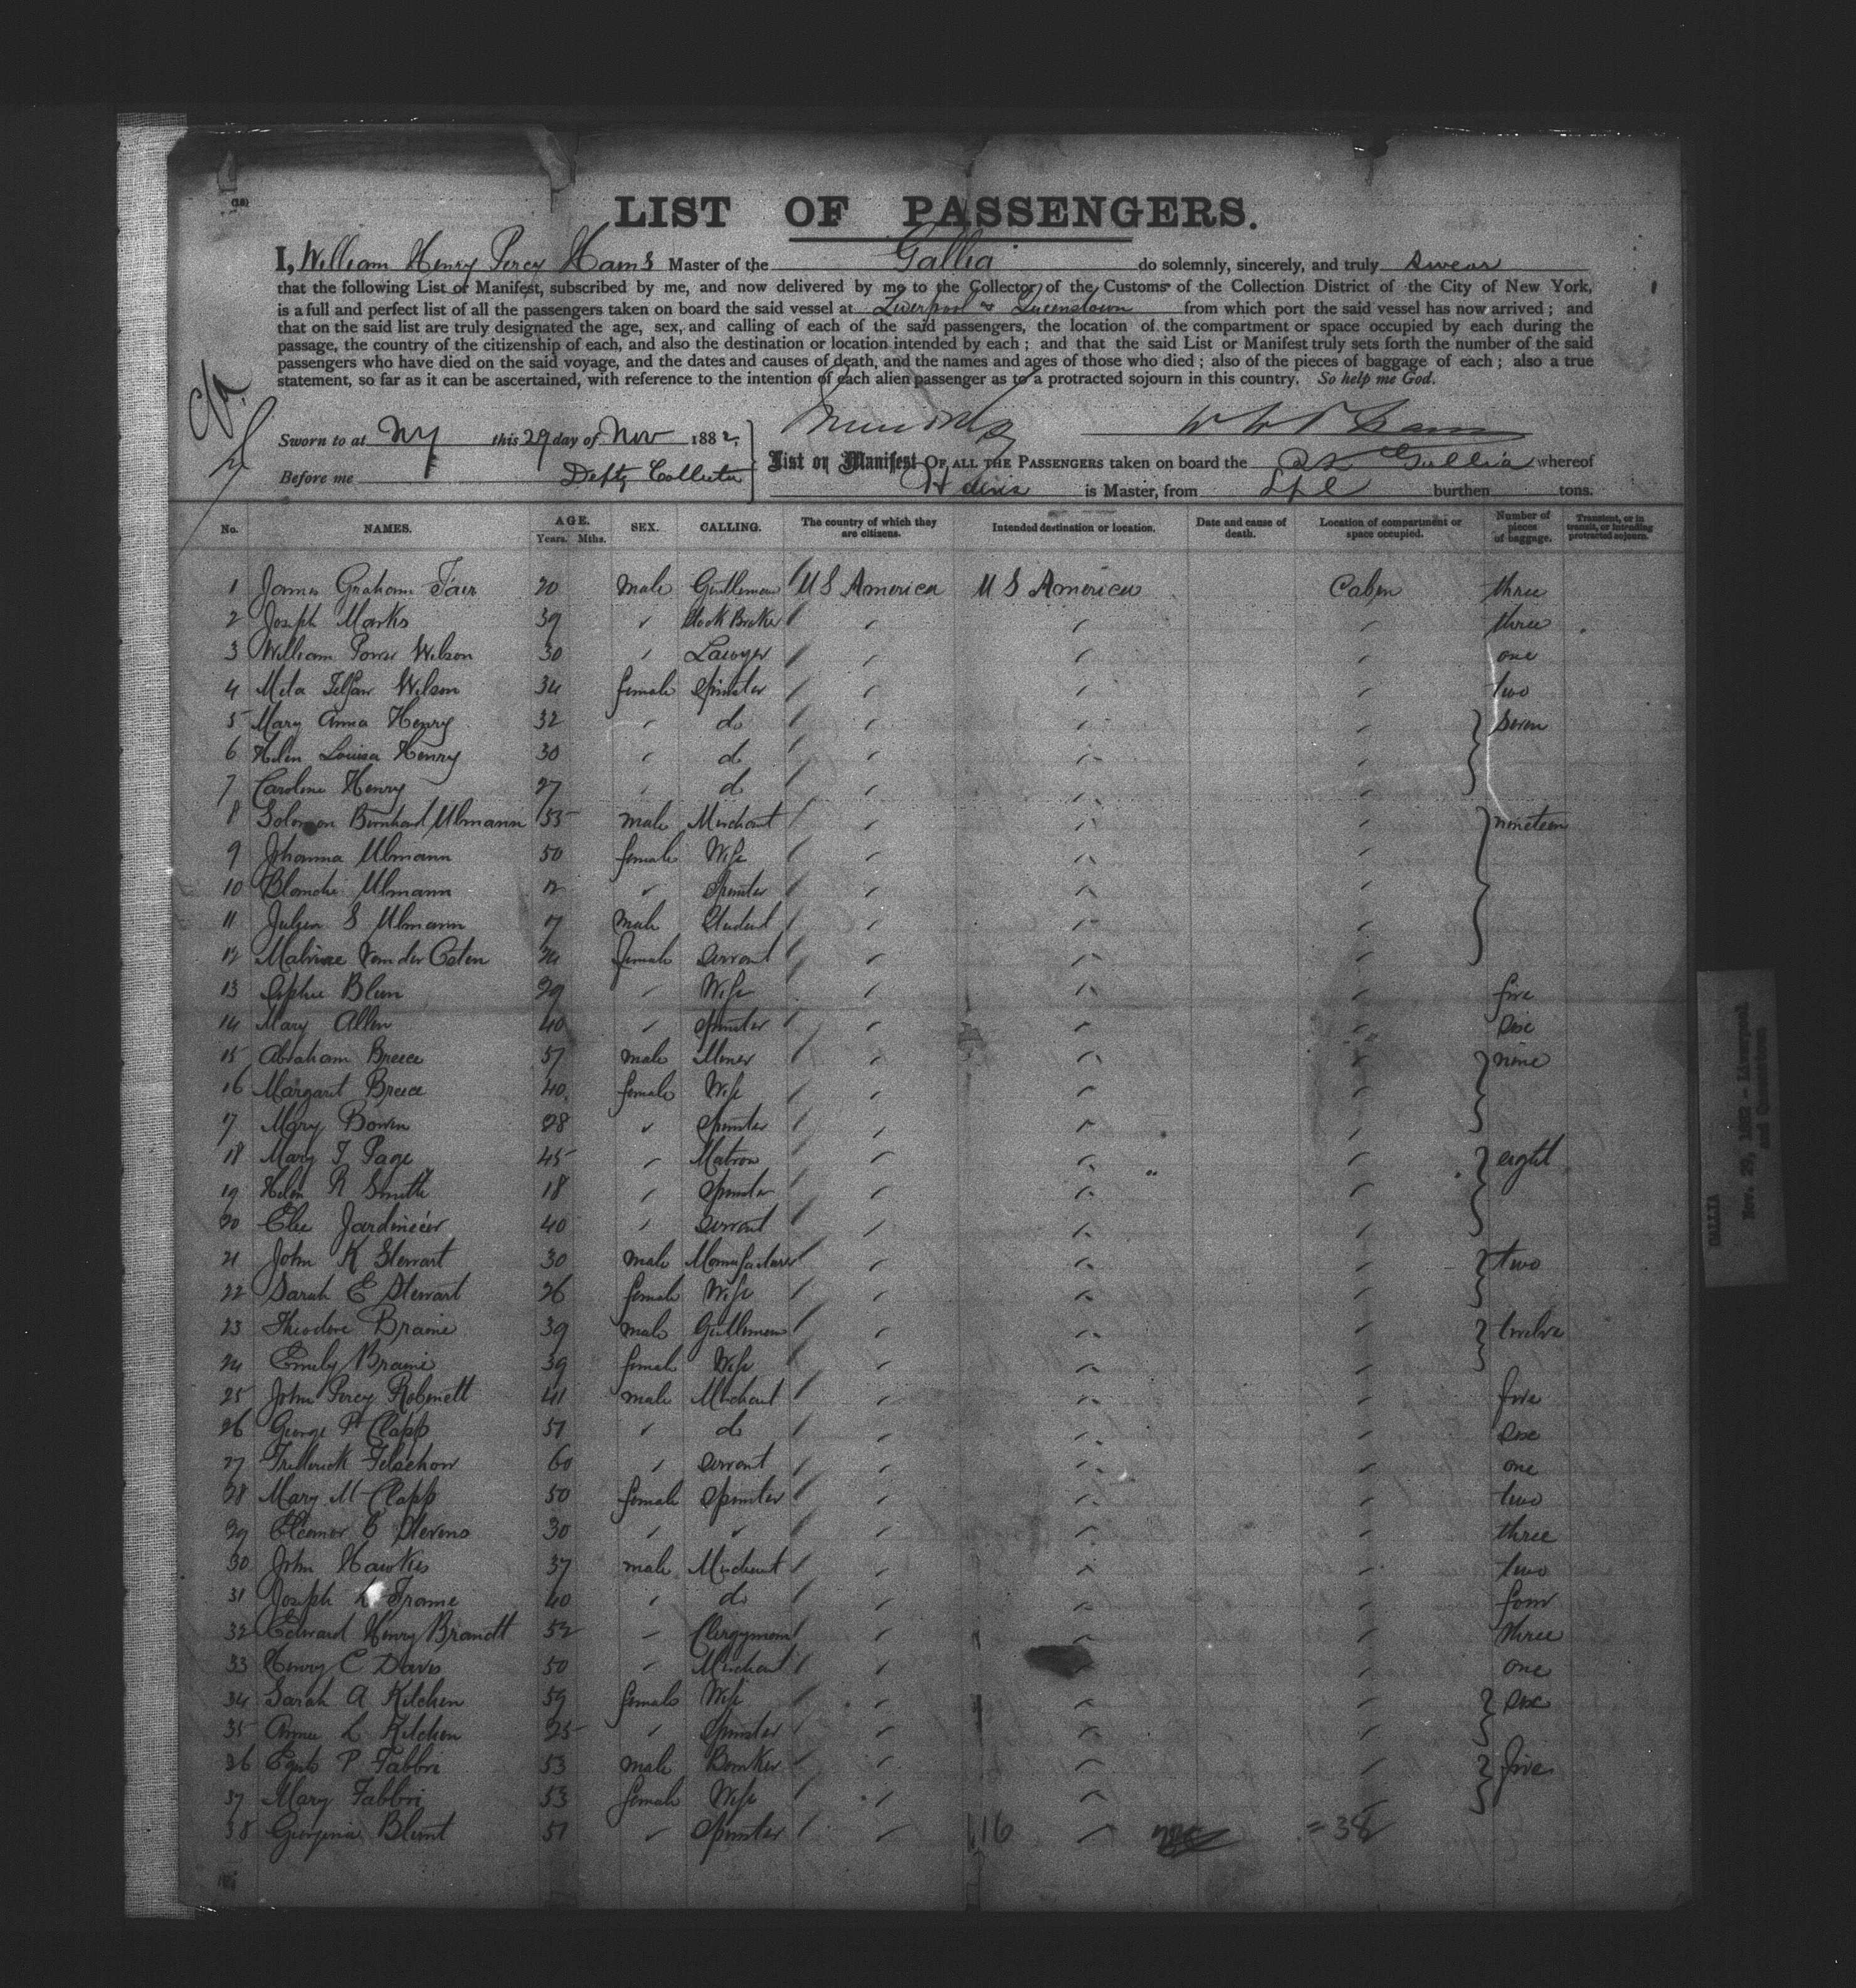 (18)
LIST OF PASSENGERS.
I, William Henry Percy Hains Master of the Gallia do solemnly, sincerely, and truly swear
that the following List or Manifest, subscribed by me, and now delivered by me to the Collector of the Customs of the Collection District of the City of New York,
is a full and perfect list of all the passengers taken on board the said vessel at Liverpool & Queenstown from which port the said vessel has now arrived; and
that on the said list are truly designated the age, sex, and calling of each of the said passengers, the location of the compartment or space occupied by each during the
passage, the country of the citizenship of each, and also the destination or location intended by each; and that the said List or Manifest truly sets forth the number of the said
passengers who have died on the said voyage, and the dates and causes of death, and the names and ages of those who died; also of the pieces of baggage of each; also a true
statement, so far as it can be ascertained, with reference to the intention of each alien passenger as to a protracted sojourn in this country. So help me God.
Sworn to at NY this 29 day of Nov 1882,
Before me Depty Collector
List or Manifest OF ALL THE PASSENGERS taken on board the SS Gallia whereof
Hains is Master, from Lpl burthen tons.
No. NAMES. AGE. Years. Mths. SEX. CALLING. The country of which they are citizens. Intended destination or location. Date and cause of death. Location of compartment or space occupied. Number of pieces of baggage. Transient, or in transit, or intending protracted sojourn.
1 James Graham Fair 20 male Gentleman U S America U S America Cabin three
2 Joseph Marks 39 " Stock Broker " " " three
3 William Power Wilson 30 " Lawyer " " " one
4 Meta Wilson 34 female Spinster " " " two
5 Mary Anna Henry 32 " do " " " seven
6 Helen Louisa Henry 30 " do " " "
7 Caroline Henry 27 " do " " "
8 Solomon Bernhard Ulmann 55 male Merchant " " " nineteen
9 Johanna Ulmann 50 female Wife " " "
10 Blanche Ulmann 12 " Spinster " " "
11 Julien S Ulmann 17 male Student " " "
12 Van der 24 female Servant " " "
13 Sophie Blun 29 " Wife " " " five
14 Mary Allen 40 " Spinster " " " six
15 Abraham Breece 57 male Miner " " " nine
16 Margaret Breece 40 female Wife " " "
17 Mary Bowen 28 " Spinster " " "
18 Mary F Page 45 " Matron " " " eight
19 Helen R Smith 18 " Spinster " " "
20 40 " Servant " " "
21 John K Stewart 30 male Manufacturer " " " two
22 Sarah E Stewart 26 female Wife " " "
23 Theodore Braine 39 male Gentleman " " " twelve
24 Emily Braine 39 female Wife " " "
25 John Percy Robinett 41 male Merchant " " " five
26 George P Clapp 51 " do " " " six
27 Frederick Felschow 60 " Servant " " " one
28 Mary M Clapp 50 female Spinster " " " two
29 Eleanor E Stevens 30 " " " " " three
30 John Hawkes 37 male Merchant " " " two
31 Joseph L Frame 40 " do " " " four
32 Edward Henry Brandt 52 " Clergyman " " " three
33 Henry C Davis 50 " Merchant " " " one
34 Sarah A Kitchen 59 female Wife " " " six
35 Annie L Kitchen 25 " Spinster " " "
36 Egisto P Fabbri 53 male Banker " " " five
37 Mary Fabbri 53 female Wife " " "
38 Georgina Blunt 51 " Spinster " 116 " = 38
GALLIA
Nov. 29, 1882 - Liverpool
and Queenstown